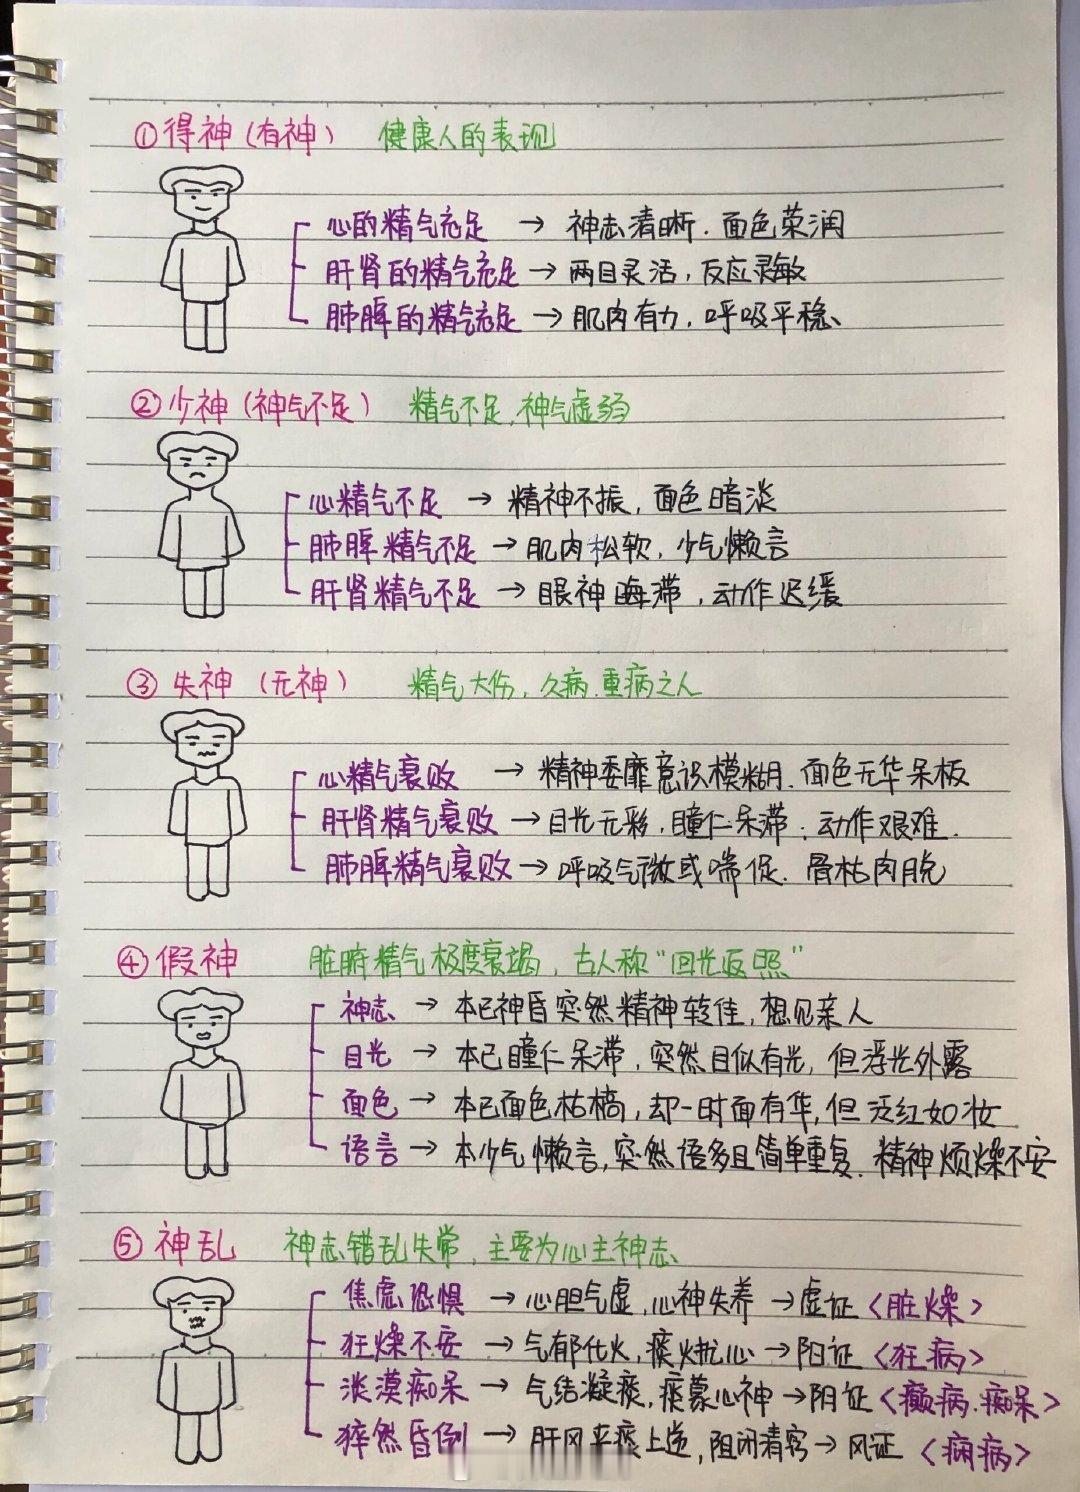 ①得神(有神) 健康人的表现
心的精气充足 → 神志清晰.面色荣润
肝肾的精气充足→两目灵活,反应灵敏
肺脾的精气充足→肌肉有力,呼吸平稳、
②少神(神气不足) 精气不足,神气虚弱
心精气不足 → 精神不振,面色暗淡
肺脾精气不足→肌肉松软,少气懒言
肝肾精气不足→眼神晦滞,动作迟缓
③失神(无神) 精气大伤,久病.重病之人
心精气衰败 → 精神委靡意识模糊.面色无华呆板
肝肾精气衰败→目光无彩,瞳仁呆滞.动作艰难.
肺脾精气衰败→呼吸气微或喘促.骨枯肉脱
④假神 脏腑精气极度衰竭,古人称“回光返照”
神志 → 本已神昏突然精神转佳,想见亲人
目光 → 本已瞳仁呆滞,突然目似有光,但浮光外露
面色→ 本已面色枯槁,却一时面有华,但泛红如妆
语言→ 本少气懒言,突然语多且简单重复.精神烦燥不安
⑤神乱 神志错乱失常,主要为心主神志
焦虑恐惧 →心胆气虚,心神失养→虚证〈脏燥〉
狂燥不安→气郁化火,痰火扰心→阳证〈狂病〉
淡漠痴呆→气结凝痰,痰蒙心神→阳证〈癫病.痴呆〉
猝然昏倒→肝风夹痰上逆,阻闭清窍→风证〈痫病〉